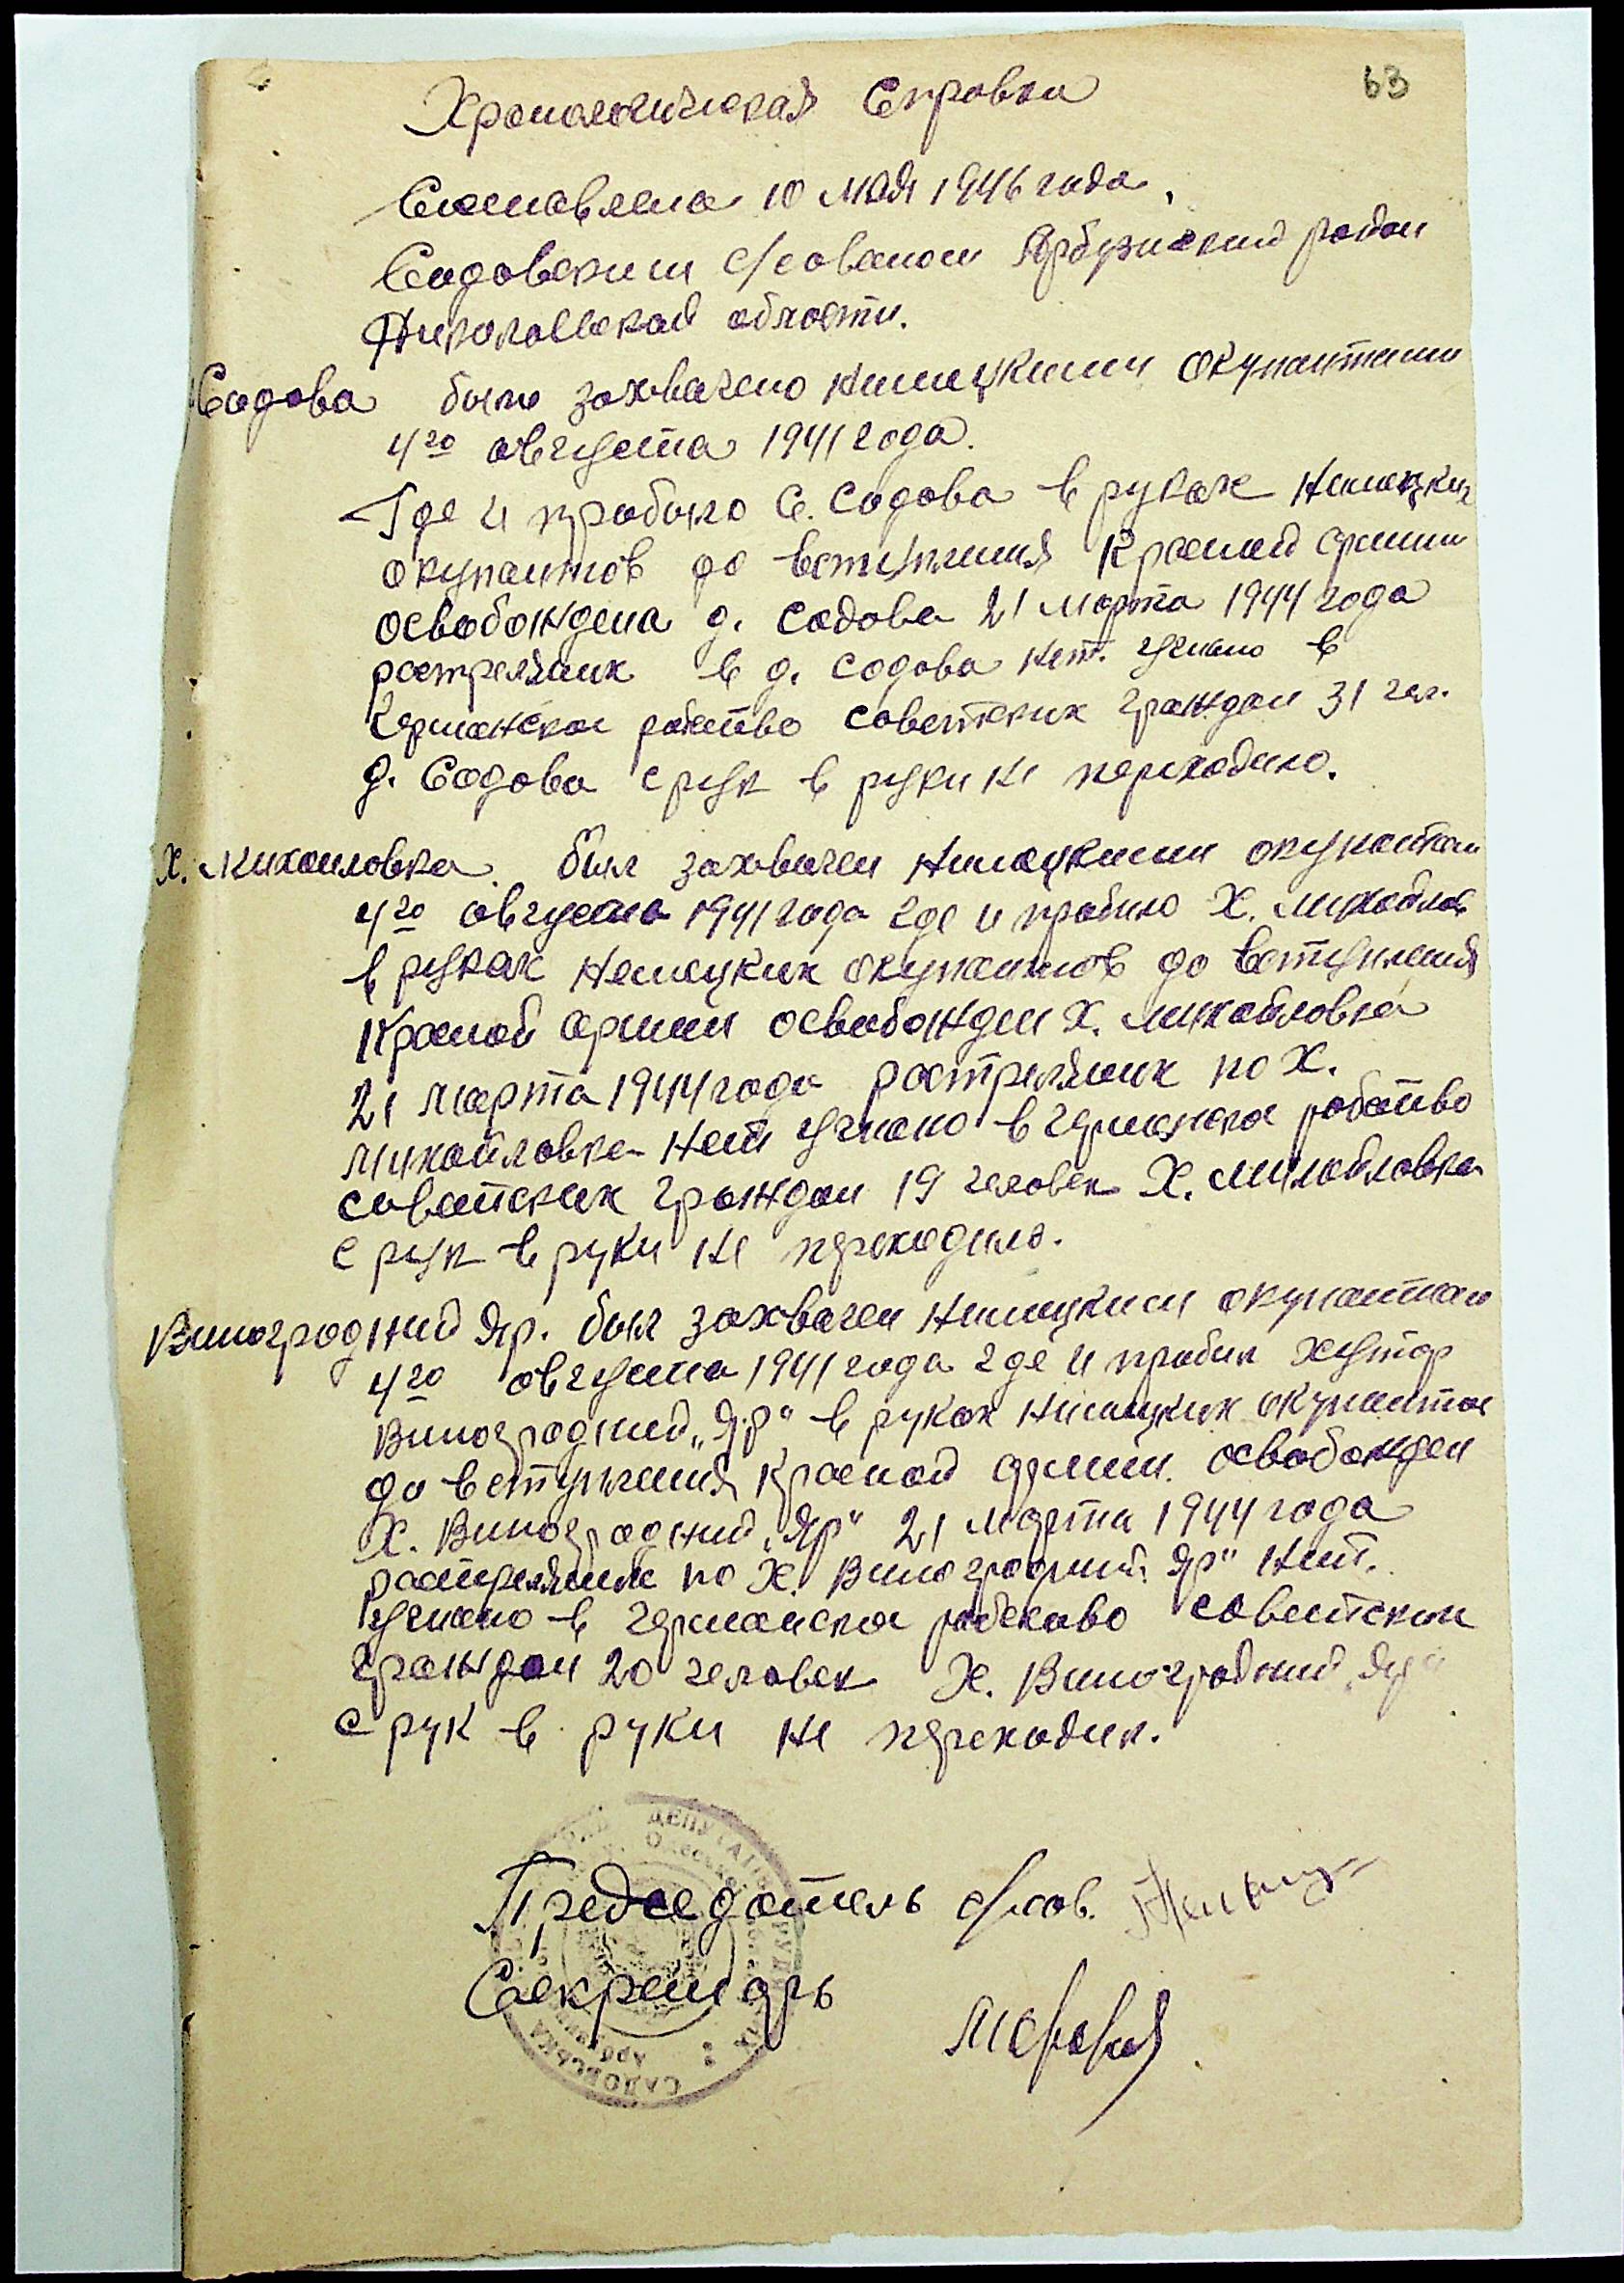 63
Хронологическая Справка
Составлена 10 мая 1946 года.
Садовским с/советом Арбузинский район
Николаевской области.
Садова было захвачено немецкими окупантами
4го августа 1941 года.
Где и пробыло С. Садова в руках немецких
окупантов до вступления Красной армии
освобождена д. Садова 21 марта 1944 года
растреляных в д. Садова нет. угнано в
Германское рабство советских граждан 31 чел.
д. Садова с рук в руки не переходило.
Х. Михайловка. был захвачен немецкими окупантами
4го августа 1941 года где и пробыло Х. Михайловка
в руках немецких окупантов до вступления
Красной армии освобожден Х. Михайловка
21 марта 1944 года растреляных по Х.
Михайловка нет угнано в германское рабство
советских граждан 19 человек Х. Михайловка
с рук в руки не переходило.
Виноградний Яр. был захвачен немецкими окупантами
4го августа 1941 года где и пробыл хутор
Виноградний „Яр“ в руках немецких окупантов
до вступления Красной армии. освобожден
Х. Виноградний „Яр“ 21 марта 1944 года
растреляных по Х. Виноградний „Яр“ нет.
угнано в германское рабство советских
граждан 20 человек Х. Виноградний „Яр“
с рук в руки не переходил.
Председатель с/сов.
Секретарь
САДОВСЬКА
ДЕПУТАТІВ